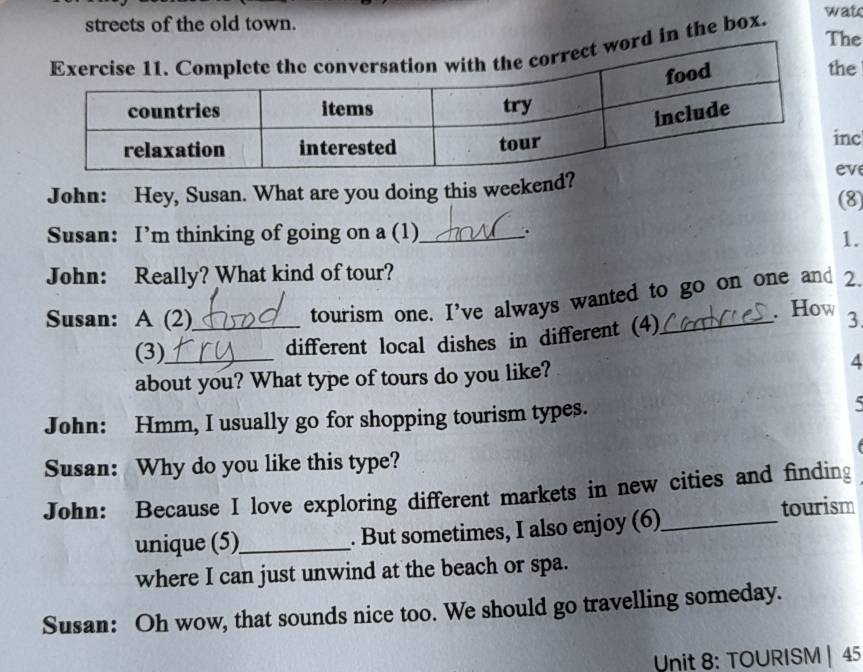 streets of the old town.
Exercise 11. Complete the conversation with the correct word in the box.
countries items try food
relaxation interested tour include
John: Hey, Susan. What are you doing this weekend?
Susan: I'm thinking of going on a (1) tour.
John: Really? What kind of tour?
Susan: A (2) food tourism one. I've always wanted to go on one and
(3) try different local dishes in different (4) . How
about you? What type of tours do you like?
John: Hmm, I usually go for shopping tourism types.
Susan: Why do you like this type?
John: Because I love exploring different markets in new cities and finding
unique (5)________. But sometimes, I also enjoy (6)________ tourism
where I can just unwind at the beach or spa.
Susan: Oh wow, that sounds nice too. We should go travelling someday.
Unit 8: TOURISM | 45
The
the
(8)
1.
2.
3.
4